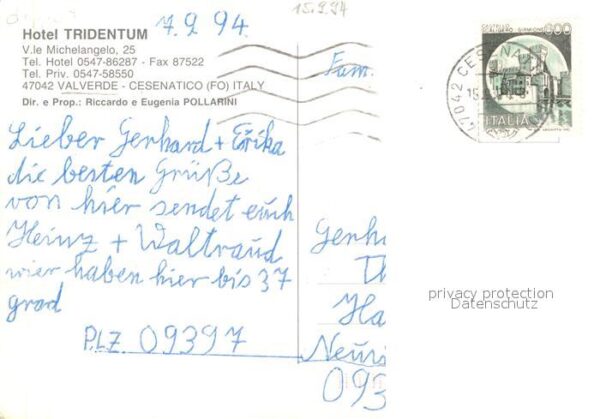 7.9.94.
15.9.94
Hotel TRIDENTUM
V.le Michelangelo, 25
Tel. Hotel 0547-86287 - Fax 87522
Tel. Priv. 0547-58550
47042 VALVERDE - CESENATICO (FO) ITALY
Dir. e Prop.: Riccardo e Eugenia POLLARINI
Lieber Gerhard + Erika
die besten Grüße
von hier sendet euch
Heinz + Waltraud
wier haben hier bis 37
grad
PLZ 09397
Fam.
Gerh
Th
Ha
Neu
093
600
ITALIA
47042 CESENA
privacy protection
Datenschutz